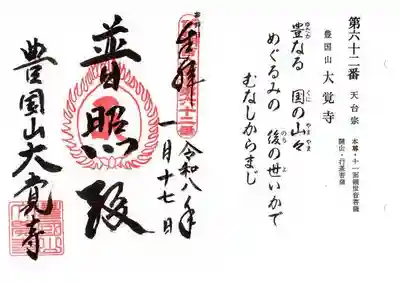 第六十二番 天台宗 本尊・十一面観世音菩薩
開山・行基菩薩
豊国山 大覚寺
豊なる 国の山々
めぐるみの 後の世いかで
むなしからまじ
奉拝 令和八年
一月十七日
普照殿
豊国山大覚寺